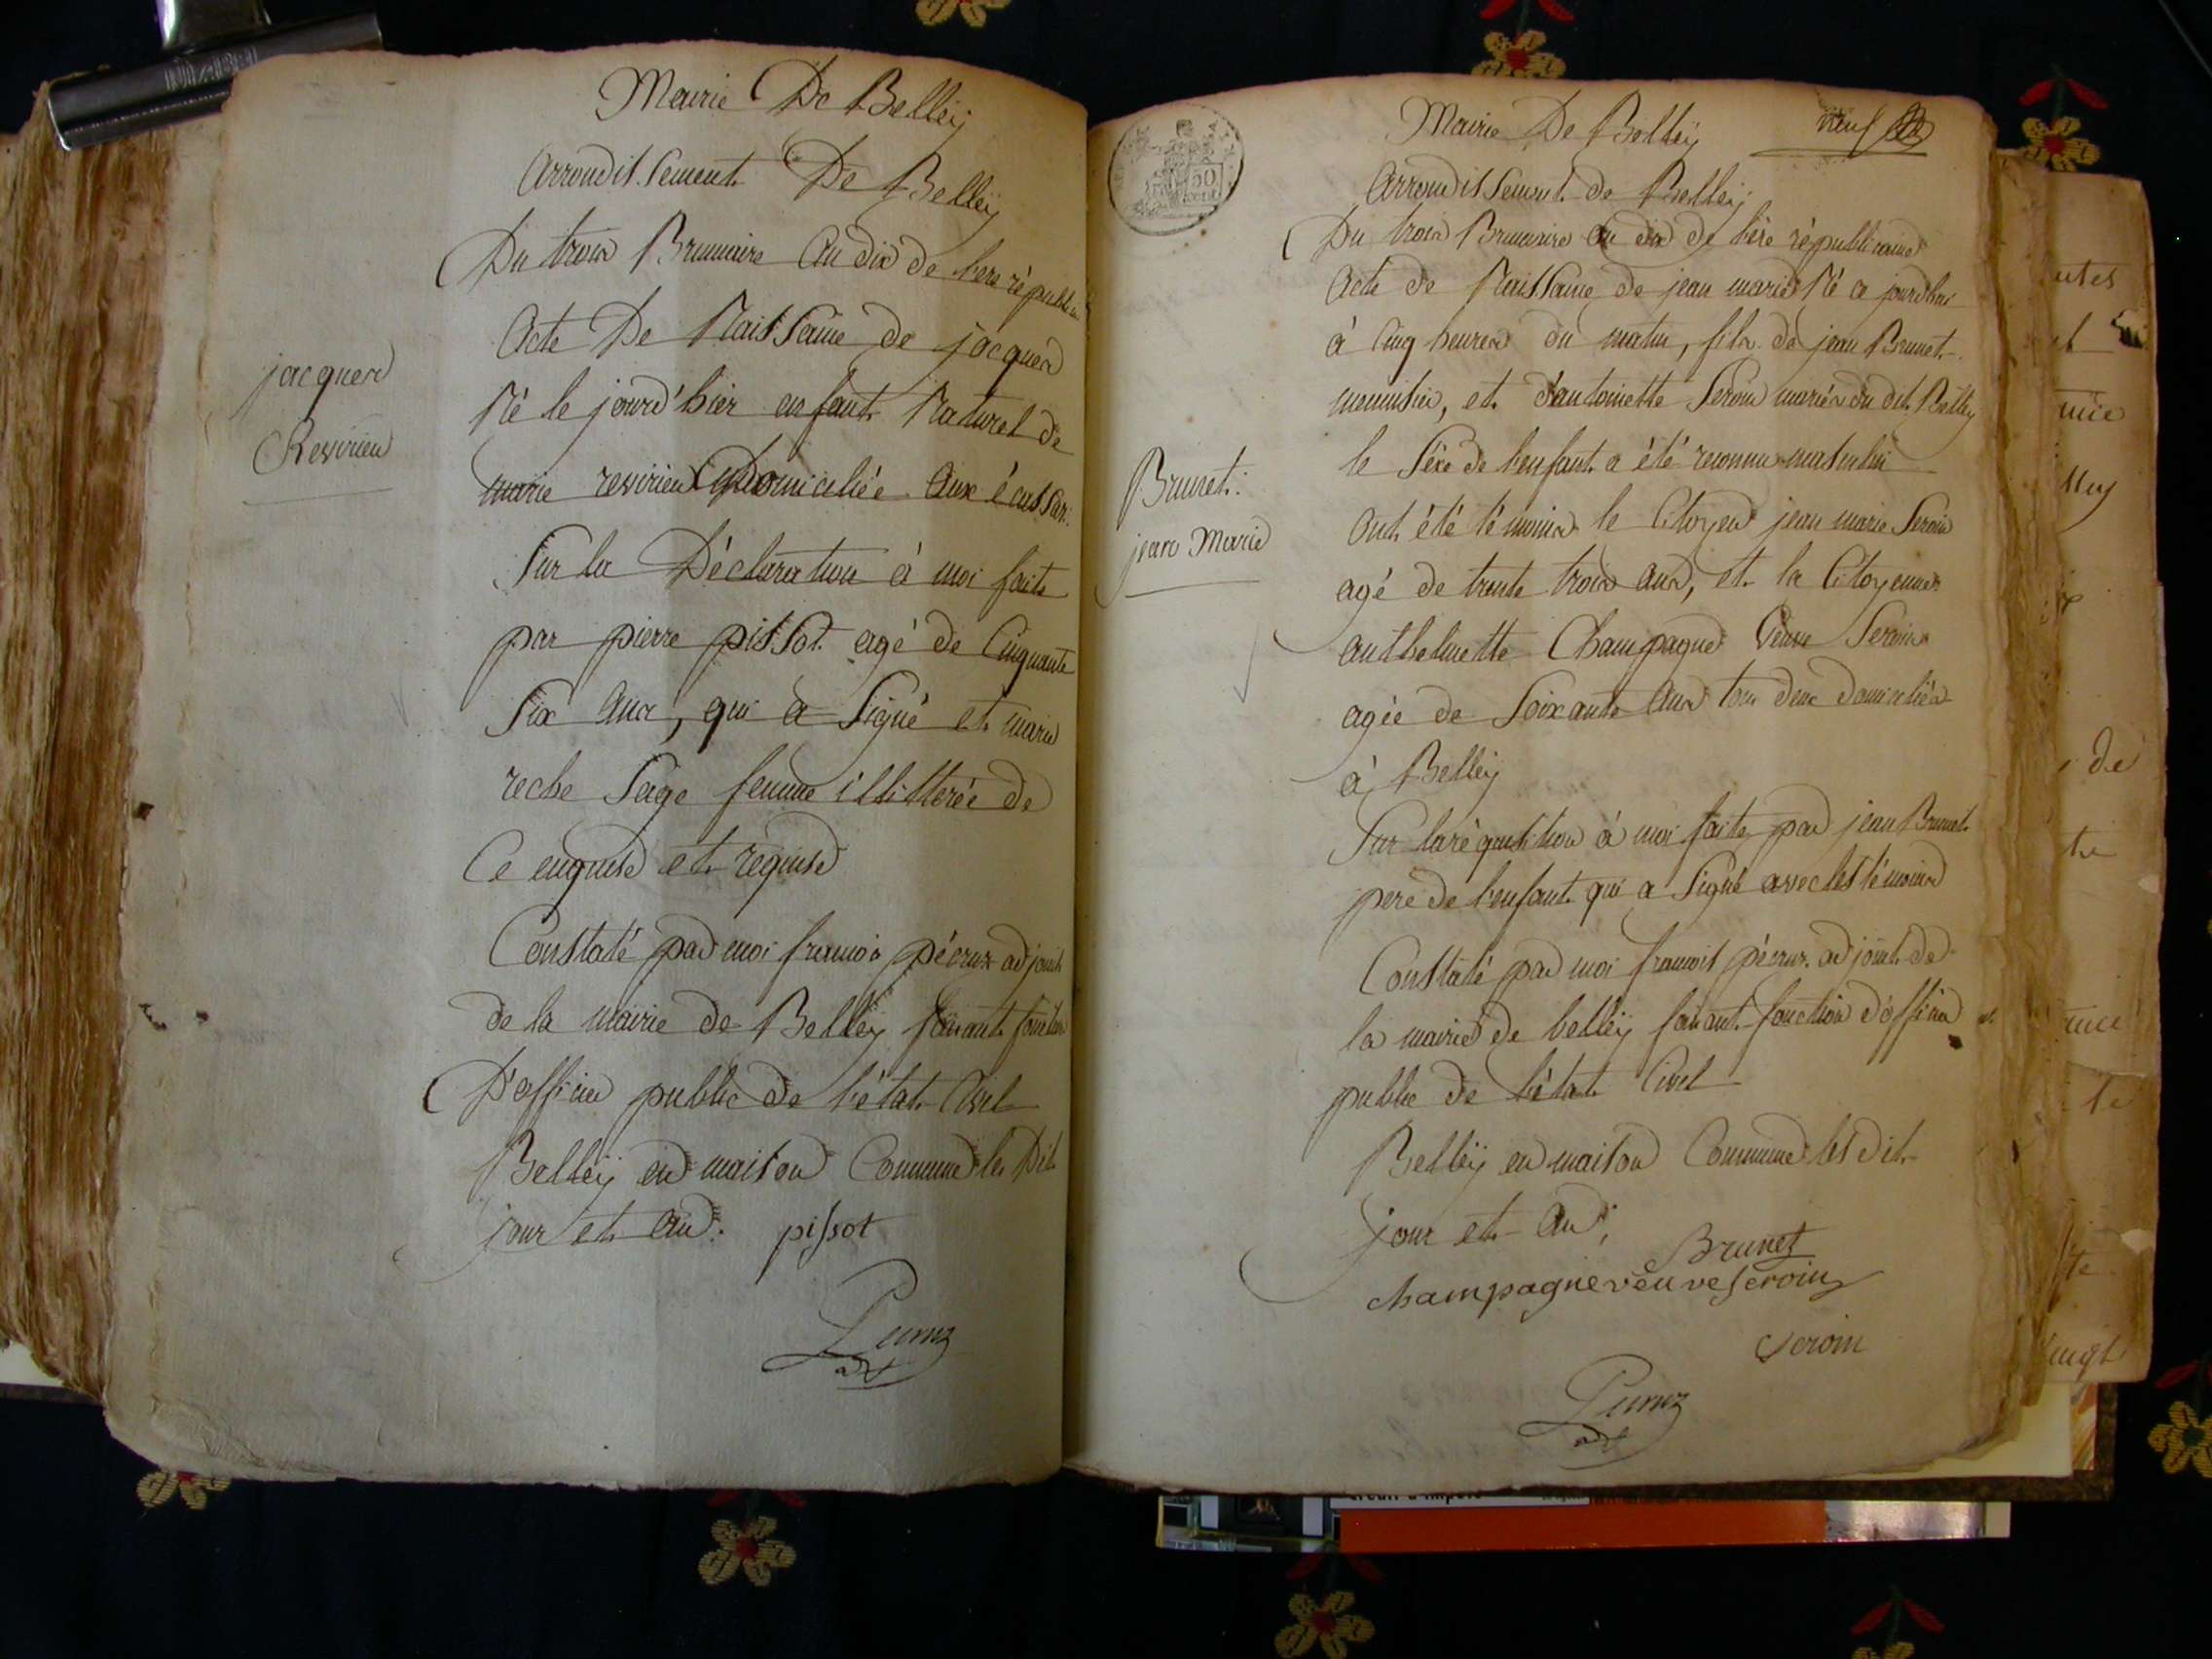 Mairie De Belleÿ
Arrondissement De Belleÿ
Du trois Brumaire an dix de l'ere républicaine
Acte De Naissance de jacques
Né le jourd'hier enfant Naturel de
marie revirieu Domiciliée aux écassas.
Sur la Déclaration à moi faite
par pierre pissot agé de Cinquante
Six ans, qui a Signé et marie
reche Sage femme illitterée de
Ce enquise et requise
Constaté par moi francois pécruz adjoint
de la mairie de Belleÿ faisant fonction
D'officier public de l'état Civil
Belleÿ en maison Commune les Dit
jour et an. pissot
adt
jacques
Revirieu
neuf
Mairie De Belleÿ
Arrondissement de Belleÿ
Du trois Brumaire an dix de l'ère républicaine
Acte de Naissance de jean marie Né a jourdhui
à Cinq heures du matin, fils de jean Brunet
menuisier, et d'antoinette Seroin mariés du dit Belleÿ
le Séxe de l'enfant a été reconnu masculin
Ont été témoins le Citoyen jean marie Seroin
agé de trente trois ans, et la Citoyenne
anthelmette Champagne Veuve Seroin
agée de Soixante ans tous deux domiciliés
à Belleÿ
Sur la réquisition à moi faite par jean Brunet
pere de l'enfant qui a Signé avec les témoins
Constaté par moi francois pécruz adjoint de
la mairie de belleÿ faisant fonction d'officier
public de l'état Civil
Belleÿ en maison Commune les dit
jour et an.
Brunet
champagne veuve seroin
Seroin
adt
Brunet
jean Marie
50
cent